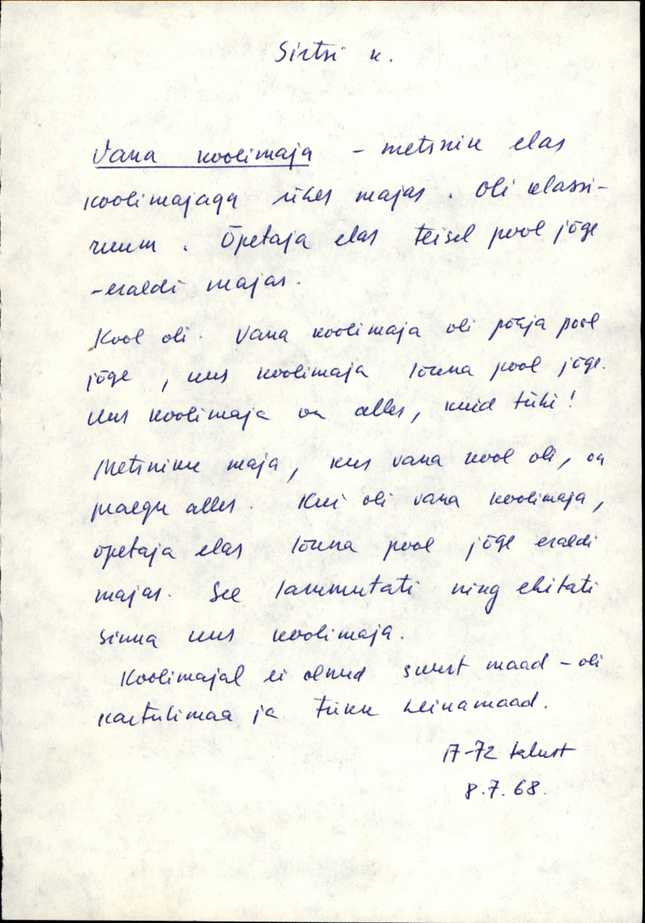 Sirtsi k.
Vana koolimaja - metsnik elas
koolimajaga ühes majas. Oli klassi-
ruum. Õpetaja elas teisel pool jõge
-eraldi majas.
Kool oli. Vana koolimaja oli põhja pool
jõge, uus koolimaja lõuna pool jõge.
Uus koolimaja on alles, kuid tühi!
Metsniku maja, kus vana kool oli, on
praegu alles. Kui oli vana koolimaja,
õpetaja elas lõuna pool jõge eraldi
majas. See lammutati ning ehitati
sinna uus koolimaja.
Koolimajal ei olnud suurt maad - oli
kartulimaa ja tükk heinamaad.
17-72 talust
8.7.68.